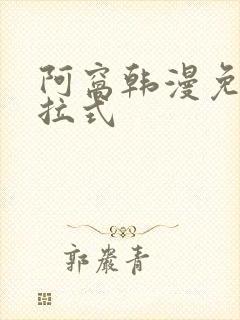 阿窝韩漫免
拉式
郭嚴青